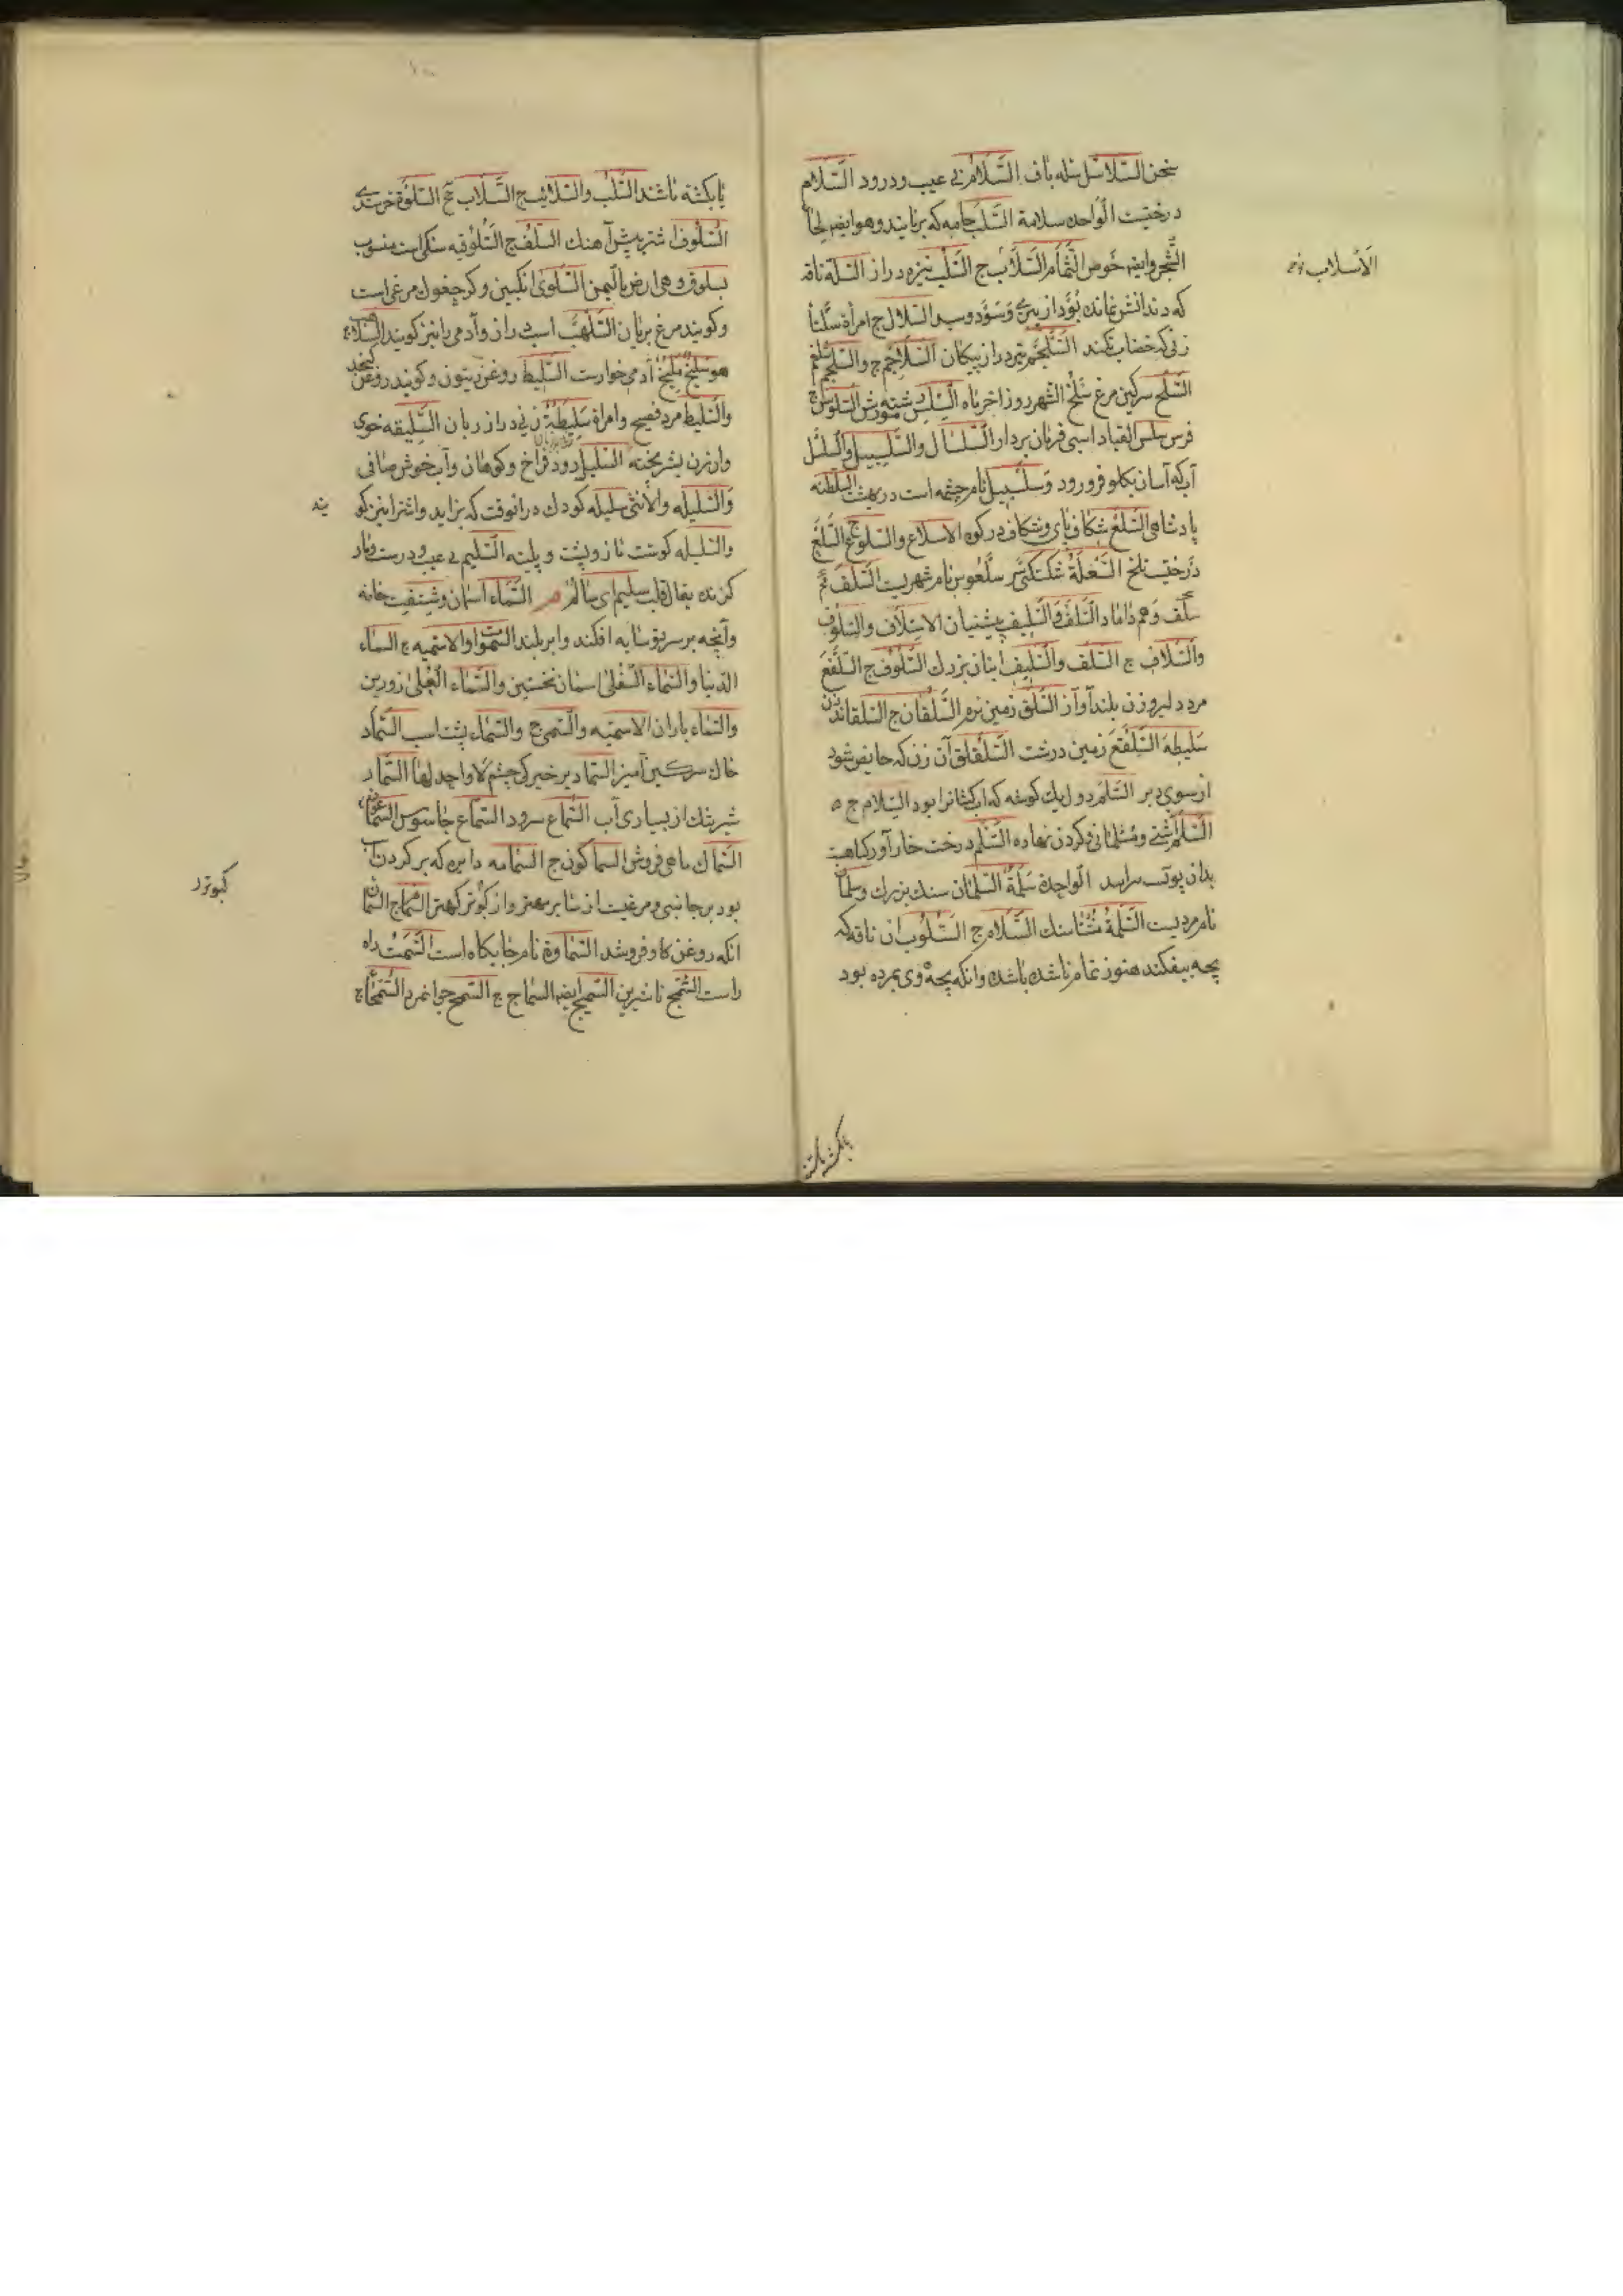 سخن السّلاسل سله باف السَّلام بی عیب و درود السّلام
درختیست الواحده سلامة السَّلَب جامه که بربایند و هو ایضا لحا
الشجر وایضا خوص الثمام السّلاب ج السَّلِب نیزه دراز السّلة ناقه
که دندانش نماند بود از پیری وَ سَوَد و سبد السّلال ج امرأة سلتا
زنی که خضاب نکند السّلجم تیر دراز پیکان السّلاجم ج والسّلجم شلغم
السّلح سرکین مرغ سَلخ الشهر روز اخر ماه السّلس السّلوس ج
فرس سلس القیاد اسبی فرمان بردار السّلسال والسّلسبیل والسلسل
آب که آسان بکلو فرو رود وسلسبیل نام چشمه است در بهشت السّلطنه
پادشاهی السّلع شکاف پای و شکاف در کوه الاسلاع والسّلوع ج السَّلَع
درختی تلخ السّلعة سلعوس نام شهریست السّلف
سلف وهم داماد السّلف والسّلیف پیشنیان الاسلاف والسّلوف
والسّلاف ج السّلف والسّلیف انبان بزرك السّلوف ج السّلفع
مرد دلیر و زن بلند آواز السّلق زمین نرم السّلقان ج السلقانه زن
سلیطه السّلقع زمین درشت السّلقلق آن زن که حایض شود
از سوی دبر السّلم دول یك کوشه که آب کشانرا بود السّلام ج
السّلم آشتی و مسلمانی و کردن نهاده السّلم درخت خارآور که
بدان پوست پیرایند الواحدة سَلَمَةُ السلمان سنك بزرك وسلمان
نام مردیست السّلمة سنك السّلام ج السّلوب آن ناقه که
بچه بیفکند هنوز تمام ناشده باشد وانکه بچه وی مرده بود
الاسلاب ج
یا بکشته باشند
یا بکشته باشند السّلُب والسّلائب ج السّلاب ج السّلوة خرسندی
السّلوف اشتر پیش آهنك السّلف ج السّلوقیه سکی است منسوب
بسلوق و هی ارض بالیمن السّلوی انکبین و کرجفوك مرغی است
وکویند مرغ بریان السّلهب اسب دراز و آدمی را نیز کویند السّلاهب ج
هو سلیخ ملیخ آدمی خوارست السّلیط روغن زیتون وکویند روغن کنجد
والسّلیط مرد فصیح وامراة سلیطة زنی دراز زبان السّلیقه خوی
وارزن السّلیل رود فراخ و کوهان و آب خوش صافی
والسّلیله والانثی سلیله کودك در انوقت که بزاید واشتر را نیز کو
یند
والسّلیله کوشت نازو پشت و پلیته السّلیم بی عیب و درست و مار
کزنده یقال قلب سلیم ای سالم م السّماء آسمان و سقف خانه
وآنچه بر سر تو سایه افکند وابر بلند السّموات والاسمیه ج السّماء
الدنیا والسّماء السّفلی اسمان نخستین والسّماء العُلی زورین
والسّماء باران الاسمیه والسّمی ج والسّماء پشت اسب السّماد
خاك سرکین آمیز السّمادیر خیرکی چشم لا واحد لها السّمار
شیر تنك از بسیاری آب السّماع سرود السّماع جاسوس السّماعون ج
السّماك ماهی فروش السماکون ج السّمامه دایره که بر کردن اسب
بود بر جانبی و مرغیست از ستا بر مهتر واز کبوتر کهتر السّمام ج السّمان
انکه روغن کاو فروشد السّماوة نام جایکاه است السّمت راه
راست السّمج ناشیرین السّمیج ایضا السّماج ج السّمح جوانمرد السّمحاء ج
کبوتر